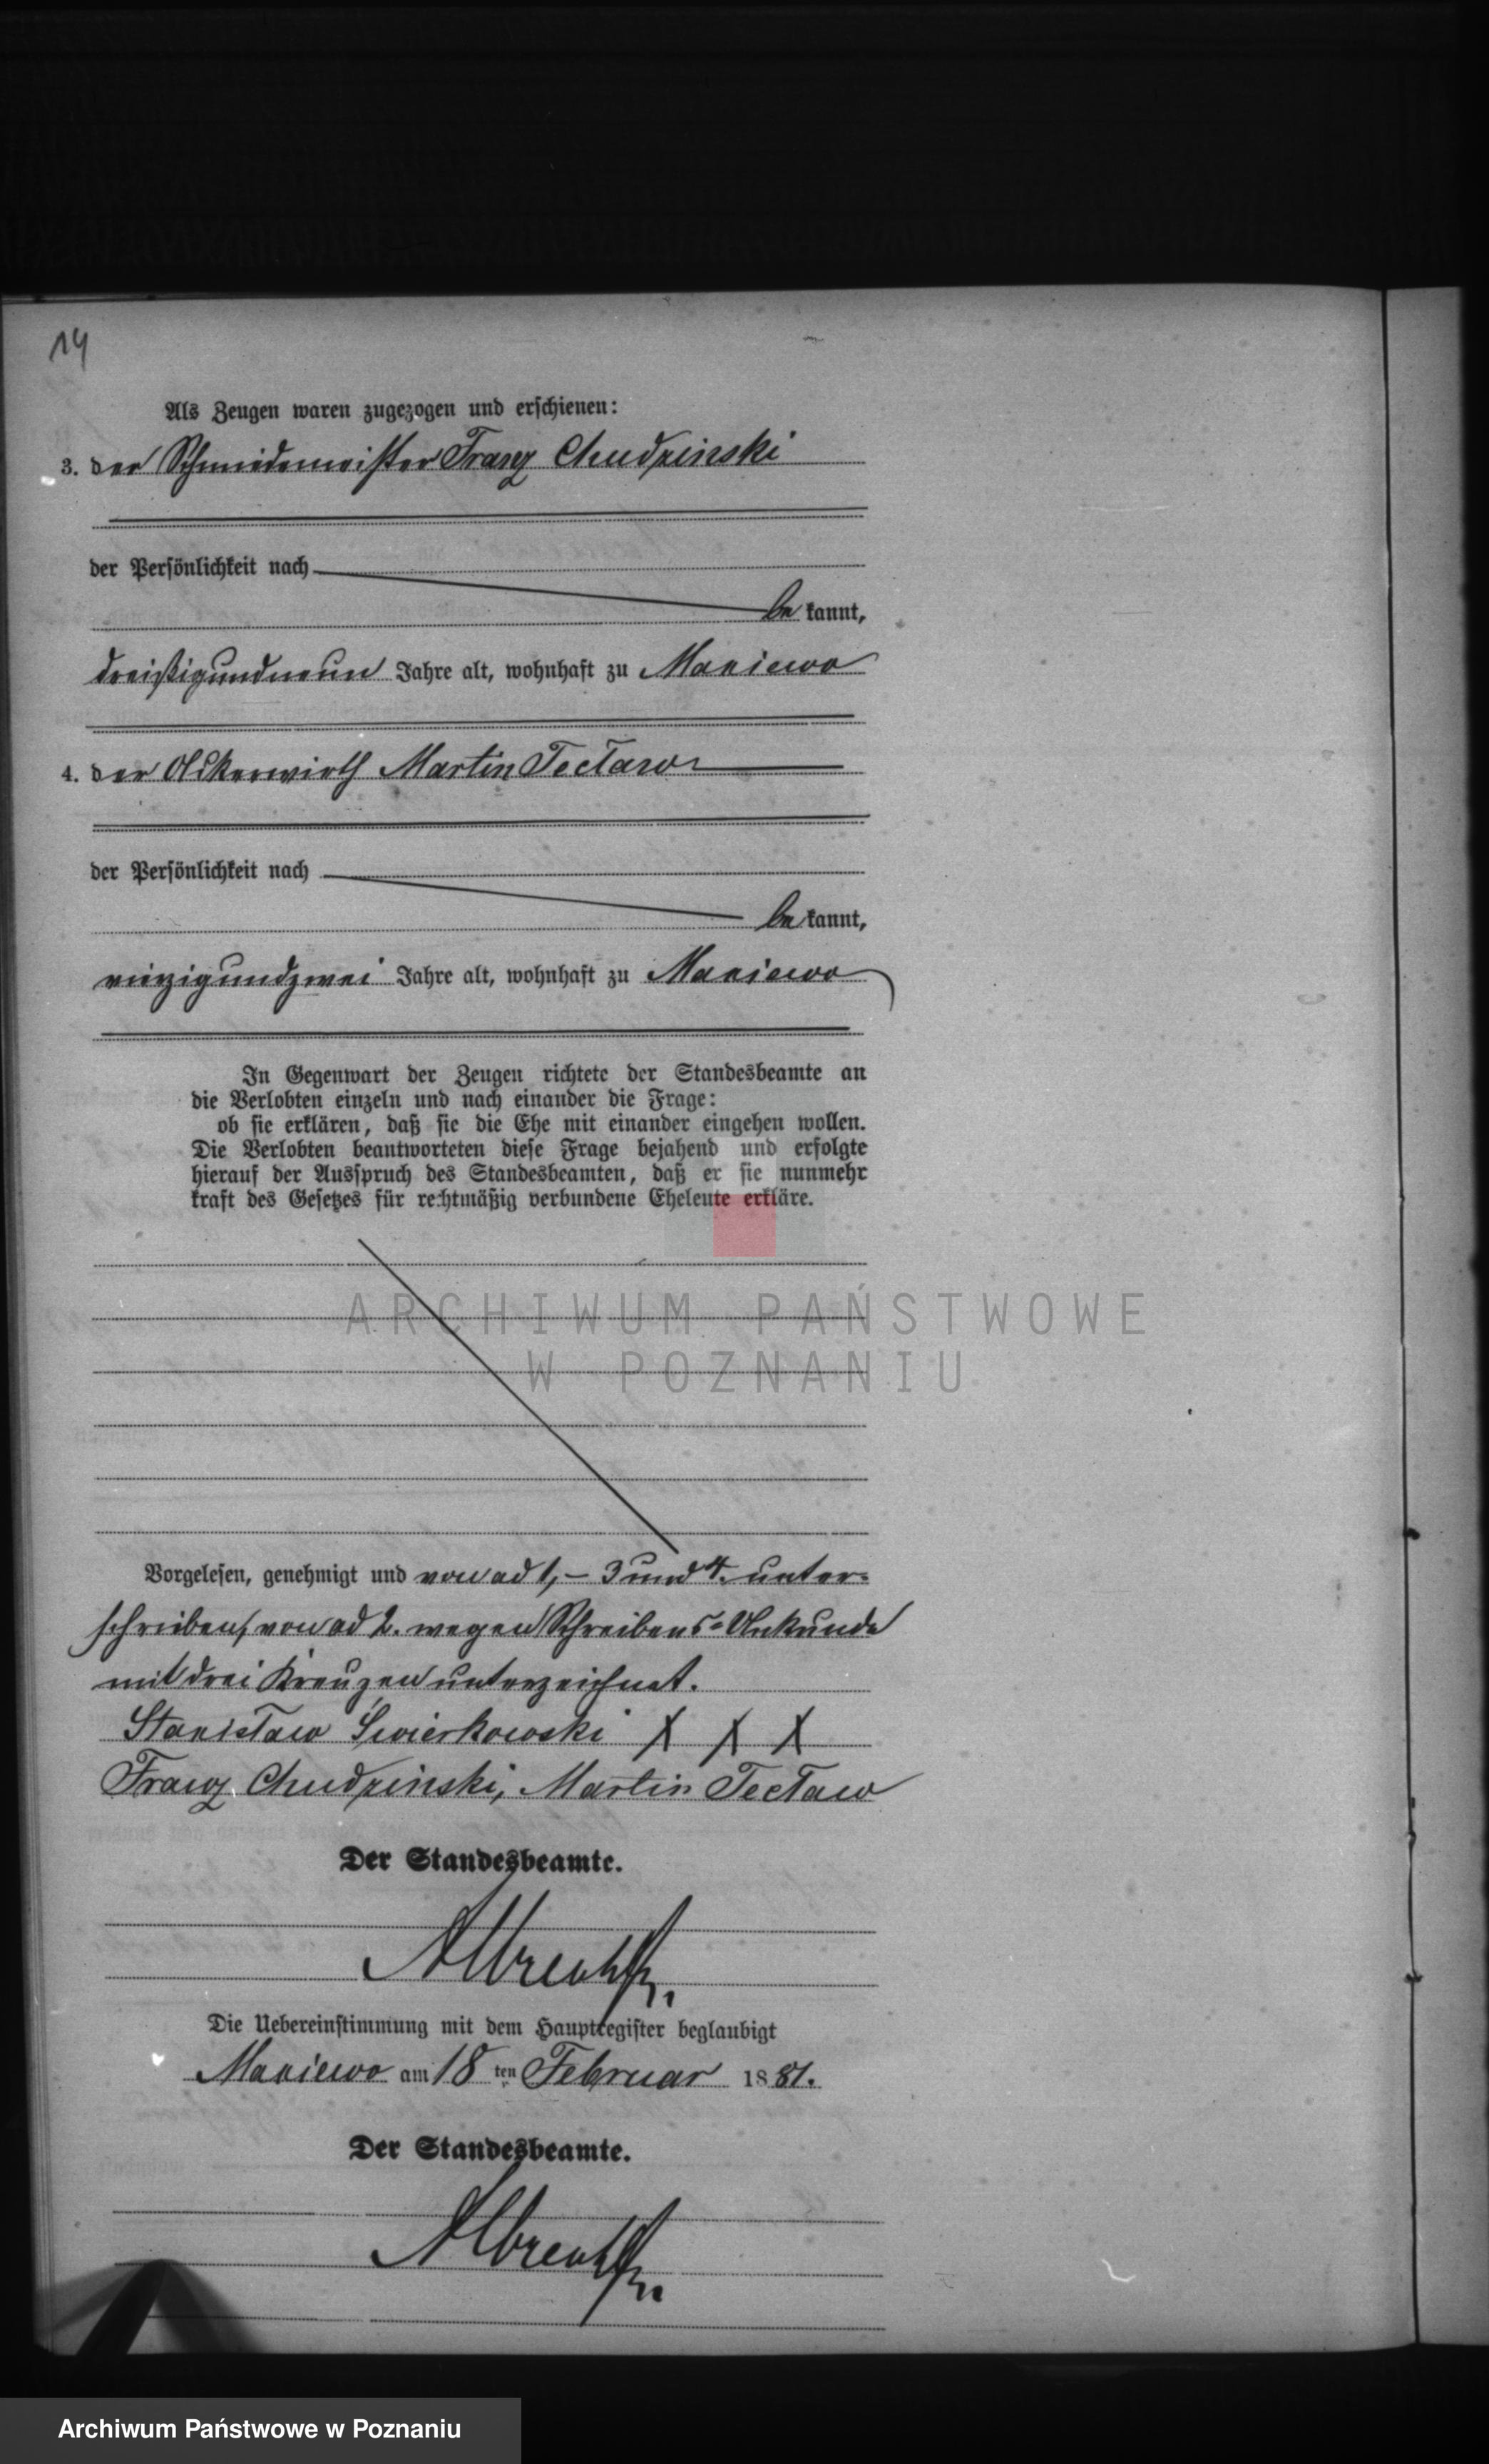 14
Als Zeugen waren zugezogen und erschienen:
3. der Schmiedemeister Franz Chudzinski
der Persönlichkeit nach
be kannt,
dreißigundneun Jahre alt, wohnhaft zu Maniewo
4. der Ackerwirth Martin Tectaw
der Persönlichkeit nach
be kannt,
vierzigundzwei Jahre alt, wohnhaft zu Maniewo
In Gegenwart der Zeugen richtete der Standesbeamte an
die Verlobten einzeln und nach einander die Frage:
ob sie erklären, daß sie die Ehe mit einander eingehen wollen.
Die Verlobten beantworteten diese Frage bejahend und erfolgte
hierauf der Ausspruch des Standesbeamten, daß er sie nunmehr
kraft des Gesetzes für rechtmäßig verbundene Eheleute erkläre.
ARCHIWUM PAŃSTWOWE
W POZNANIU
Vorgelesen, genehmigt und von ad 1, – 3 und 4. unter=
schrieben, von ad 2. wegen Schreibens=Unkunde
mit drei Kreuzen unterzeichnet.
Stanisław Świerkowski X X X
Franz Chudzinski, Martin Tectaw
Der Standesbeamte.
Albrecht
Die Uebereinstimmung mit dem Hauptregister beglaubigt
Maniewo am 18 ten Februar 1881.
Der Standesbeamte.
Albrecht
Archiwum Państwowe w Poznaniu